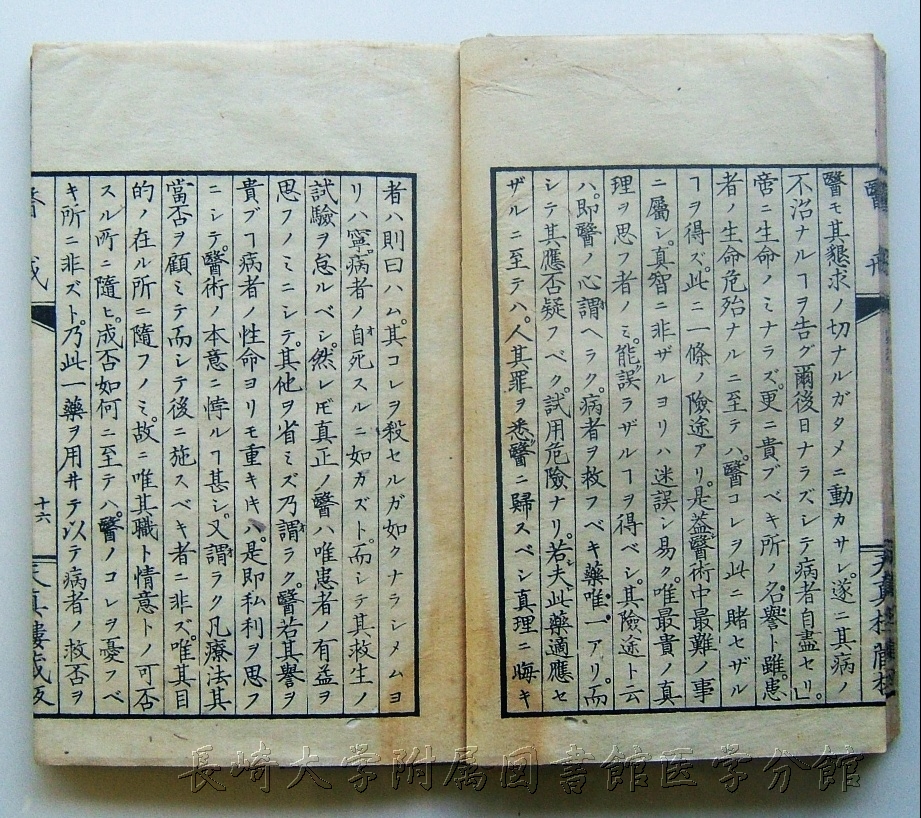 醫モ其懇求ノ切ナルガタメニ動カサレ遂ニ其病ノ
不治ナルヿヲ告グ爾後日ナラズシテ病者自盡セリ
帝ニ生命ノミナラズ更ニ貴ブベキ所ノ名譽ト雖患
者ノ生命危殆ナルニ至テハ醫コレヲ此ニ賭セザル
ヿヲ得ズ此ニ一條ノ險途アリ是葢醫術中最難ノ事
ニ屬シ真智ニ非ザルヨリハ迷誤シ易ク唯最貴ノ真
理ヲ思フ者ノミ能誤ラザルヿヲ得ベシ其險途ト云
ハ即醫ノ心謂ヘラク病者ヲ救フベキ藥唯一アリ而
シテ其應否疑フベク試用危險ナリ若夫此藥適應セ
ザルニ至テハ人其罪ヲ悉醫ニ歸スベシ真理ニ晦キ
者ハ則曰ハム其コレヲ殺セルガ如クナランメムヨ
リハ寧病者ノ自死スルニ如カズト而シテ其救生ノ
試驗ヲ怠ルベシ然レ𪜈真正ノ醫ハ唯患者ノ有益ヲ
思フノミニシテ其他ヲ省ミズ乃謂ラク醫若其譽ヲ
貴ブヿ病者ノ性命ヨリモ重キ𪜈ハ是即私利ヲ思フ
ニシテ醫術ノ本意ニ悖ルヿ甚シ又謂ラク凡療法其
當否ヲ顧ミテ而シテ後ニ施スベキ者ニ非ズ唯其目
的ノ在ル所ニ隨フノミ故ニ唯其職ト情意トノ可否
スル所ニ隨ヒ成否如何ニ至テハ醫ノコレヲ憂フベ
キ所ニ非ズト乃此一藥ヲ用井テ以テ病者ノ救否ヲ
十六
長崎大学附属図書館医学分館